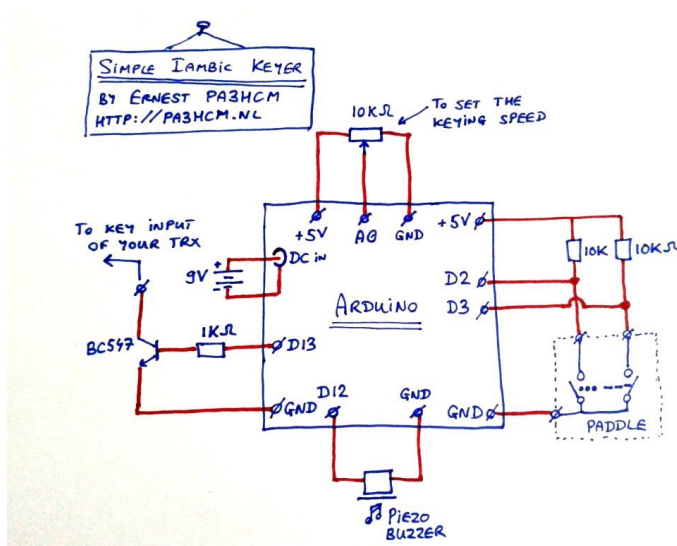 SIMPLE IAMBIC KEYER
BY ERNEST PA3HCM
HTTP://PA3HCM.NL
10KΩ
TO SET THE
KEYING SPEED
TO KEY INPUT
OF YOUR TRX
+5V
A0
GND
+5V
10K
10KΩ
DC in
9V
+
-
D2
D3
ARDUINO
BC547
1KΩ
D13
GND
D12
GND
GND
PADDLE
PIEZO
BUZZER